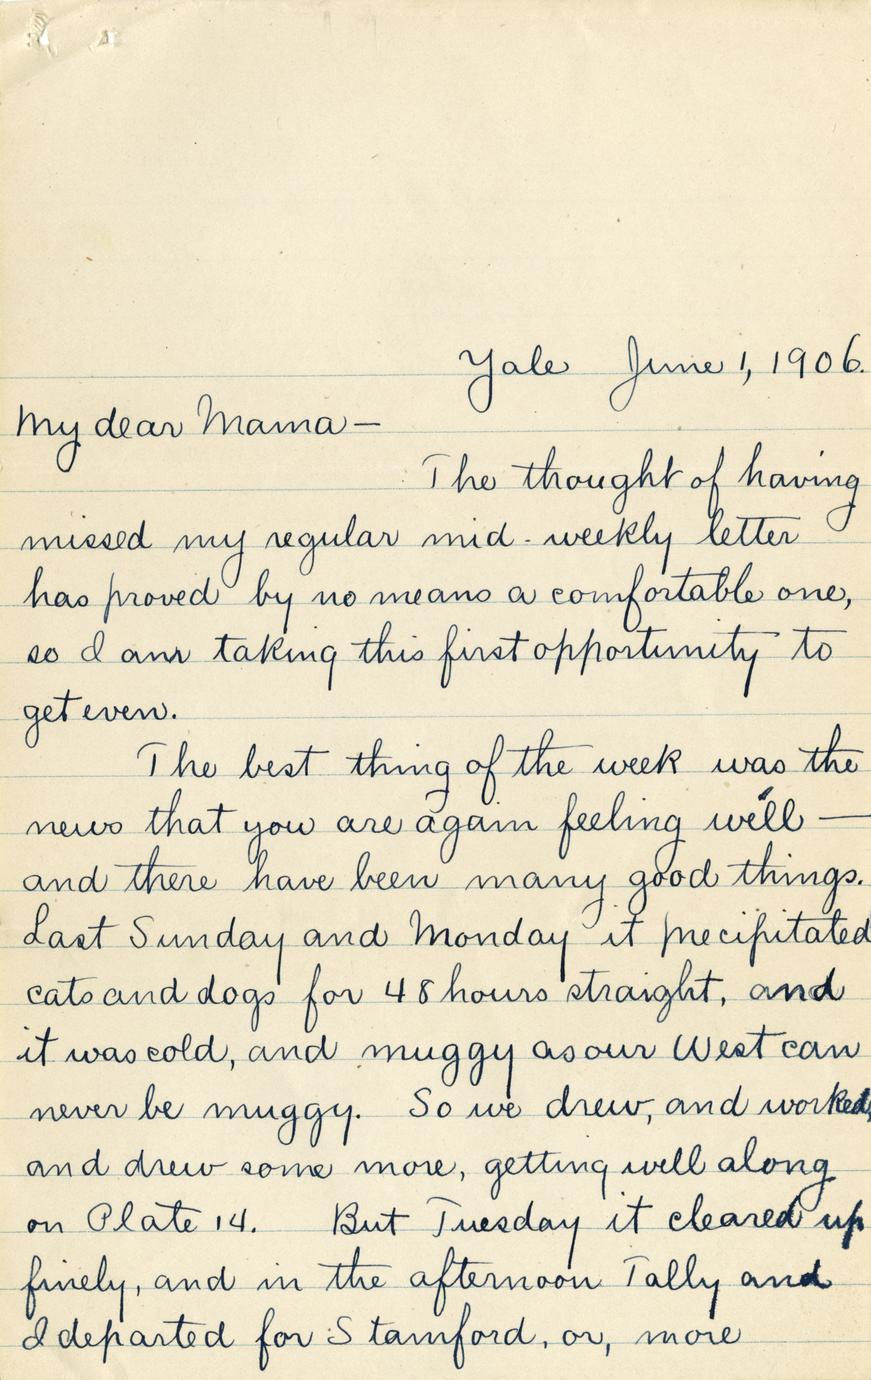 Yale June 1, 1906.
My dear Mama —
The thought of having
missed my regular mid-weekly letter
has proved by no means a comfortable one,
so I am taking this first opportunity to
get even.
The best thing of the week was the
news that you are again feeling well —
and there have been many good things.
Last Sunday and Monday it precipitated
cats and dogs for 48 hours straight, and
it was cold, and muggy as our West can
never be muggy. So we drew, and worked,
and drew some more, getting well along
on Plate 14. But Tuesday it cleared up
finely, and in the afternoon Tally and
I departed for Stamford, or, more